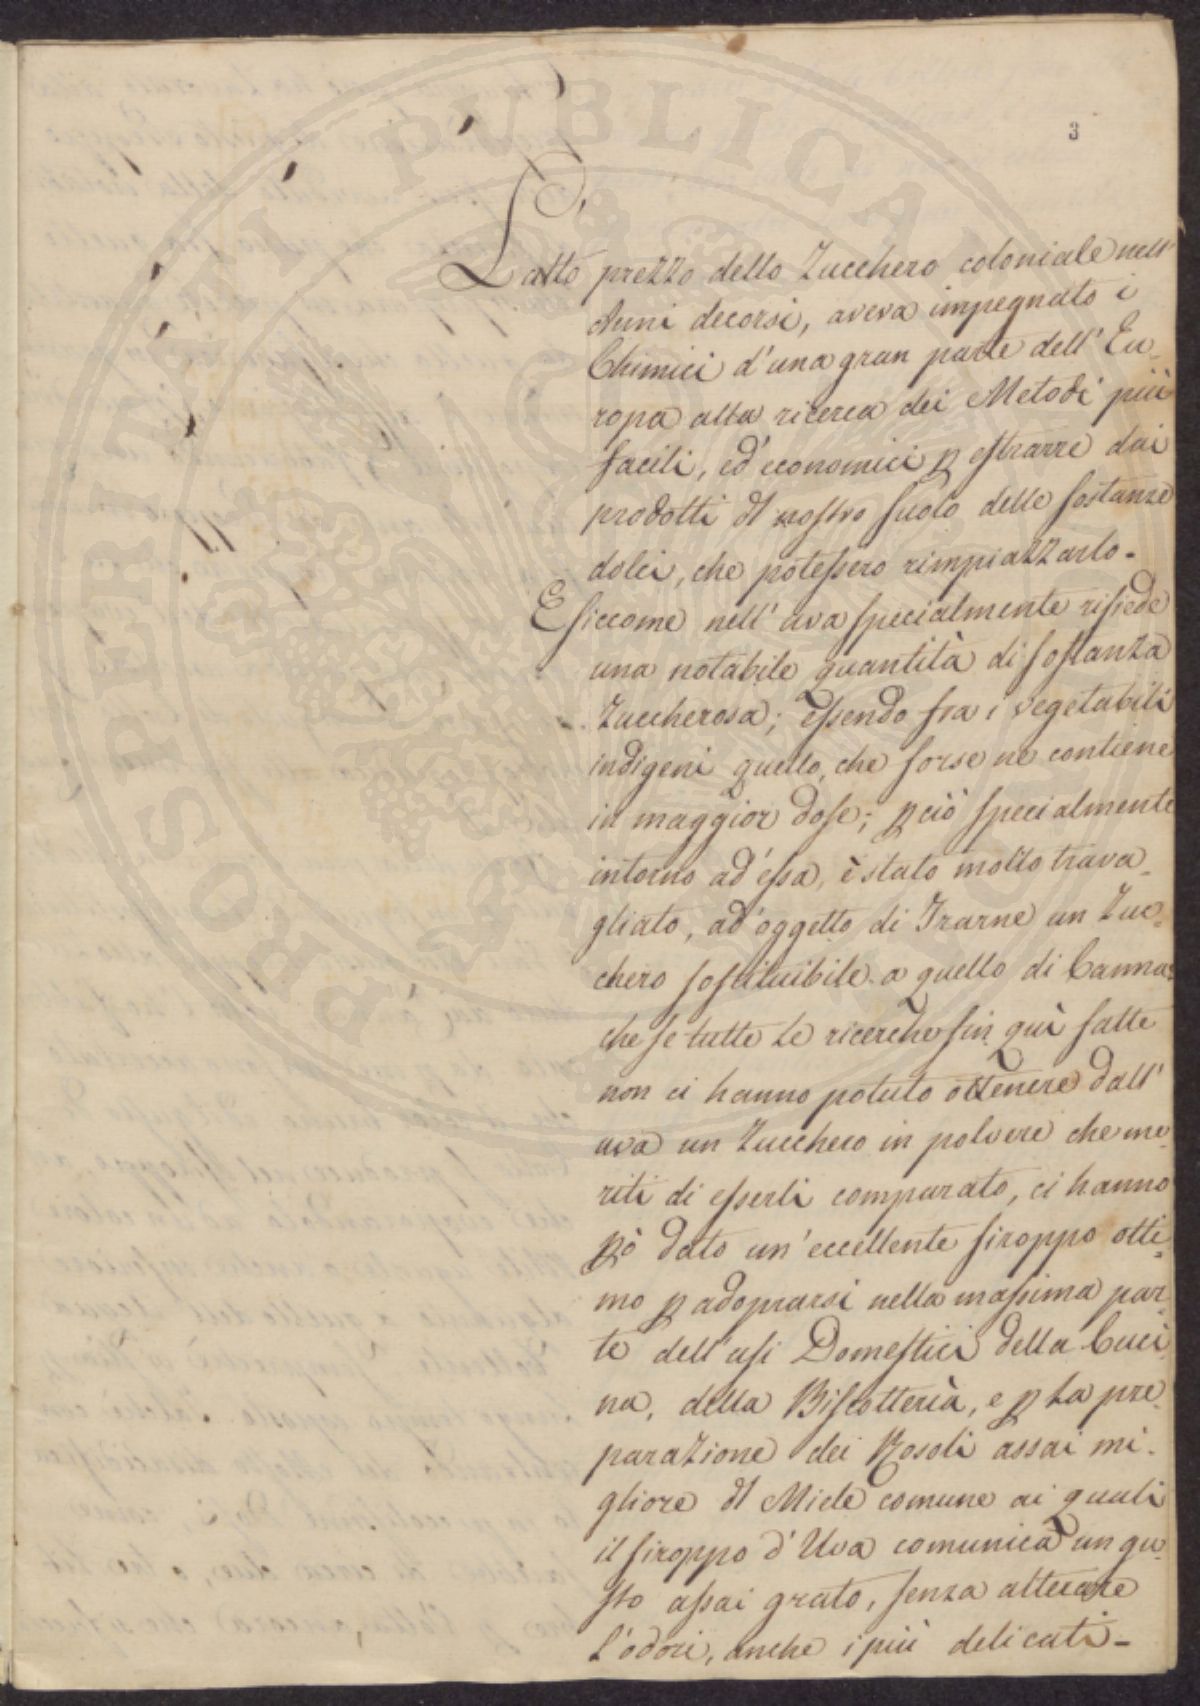 3
L'alto prezzo dello Zucchero coloniale nell'
Anni decorsi, aveva impegnato i
Chimici d'una gran parte dell'Eu-
ropa alla ricerca dei Metodi più
facili, ed'economici p estrarre dai
prodotti dl nostro suolo delle sostanze
dolci, che potessero rimpiazzarlo.
E siccome nell'uva specialmente risiede
una notabile quantità di sostanza
Zuccherosa; essendo fra i vegetabili
indigeni quello, che forse ne contiene
in maggior dose; pciò specialmente
intorno ad'essa, è stato molto trava-
gliato, ad'oggetto di Trarne un Zuc-
chero sostituibile a quello di Canna:
che se tutte le ricerche fin quì fatte
non ci hanno potuto ottenere dall'
uva un Zucchero in polvere che me-
riti di esserli comparato, ci hanno
pò dato un'eccellente siroppo otti-
mo p adoprarsi nella massima par-
te dell'usi Domestici della Cuci-
na, della Biscotteria, e p la pre-
parazione dei Rosoli assai mi-
gliore dl Miele comune ai quali
il siroppo d'Uva comunica un gu-
sto assai grato, senza alterare
l'odori, anche i più delicati-
PROSPERITATI PUBLICAE